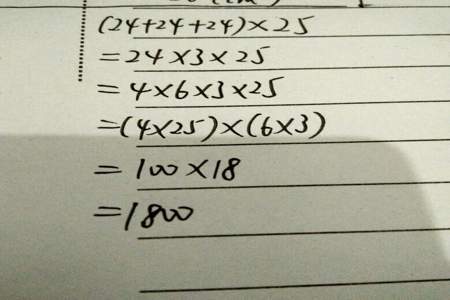 (24+24+24)×25
=24×3×25
=4×6×3×25
=(4×25)×(6×3)
=100×18
=1800